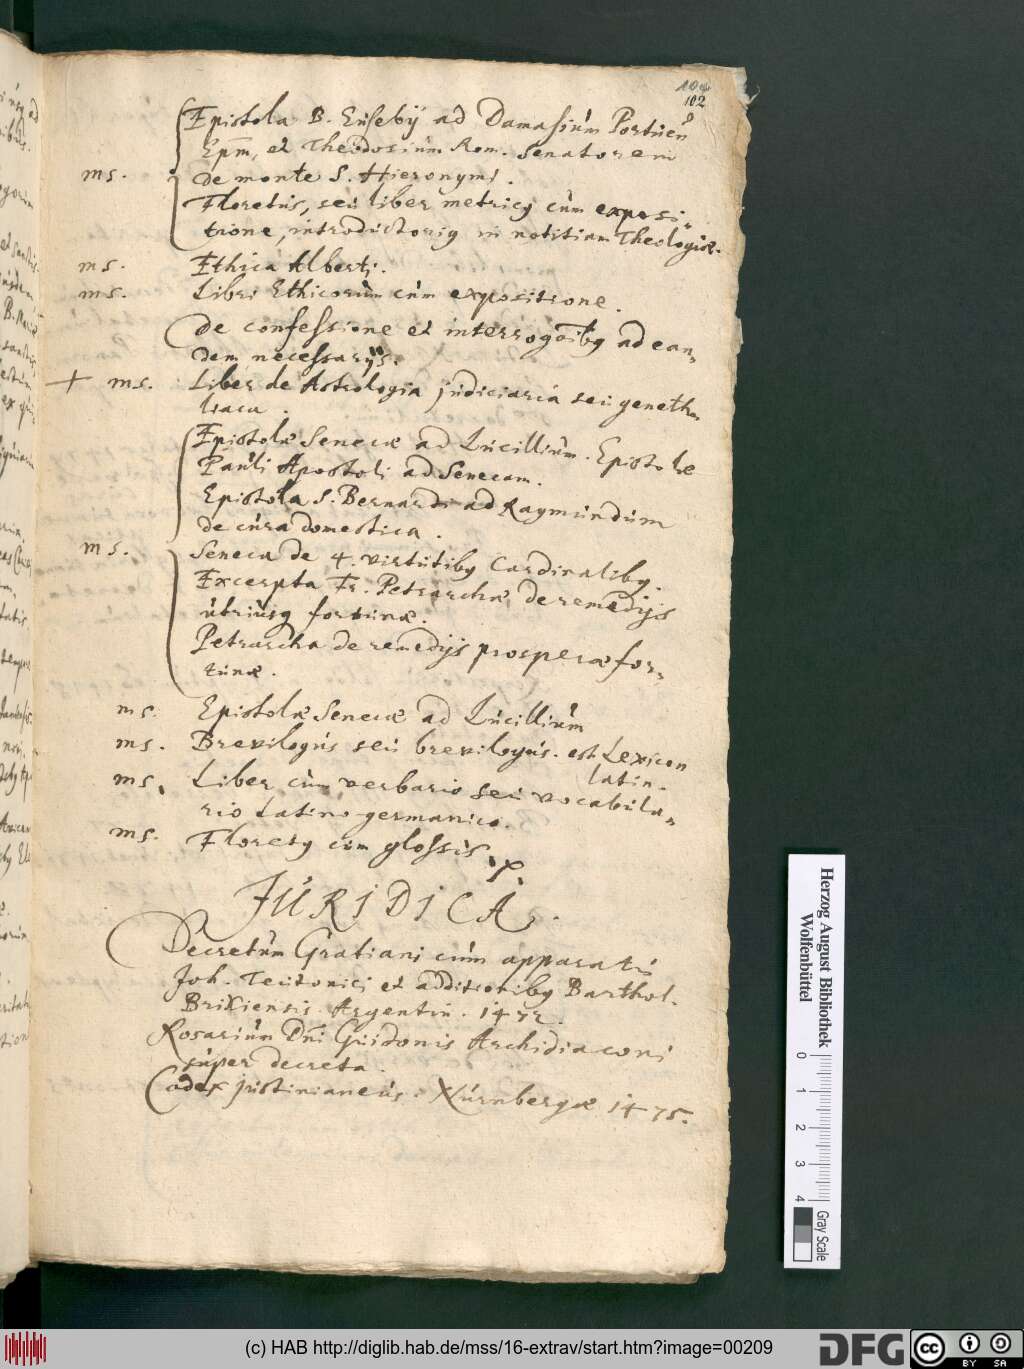 102
Epistola B. Eusebij ad Damasium Portuen
Epm, et Theodosium Rom. Senatorem
ms. de monte S. Hieronymi.
Floretus, seu liber metricq cum exposi-
tione, introductoriq in notitiam Theologiæ.
ms. Ethica Alberti.
ms. Libri Ethicorum cum expositione.
De confessione et interrogaōibq ad ean-
dem necessarijs.
+ ms. Liber de Astrologia judiciaria seu geneth-
liaca.
Epistolæ Senecæ ad Lucillium. Epistolæ
Pauli Apostoli ad Senecam.
Epistola S. Bernardi ad Raymundum
de cura domestica.
ms. Seneca de 4. virtutibq Cardinalibq.
Excerpta Fr. Petrarchæ de remedijs
utriusq fortunæ.
Petrarcha de remedijs prosperæ for-
tunæ.
ms. Epistolæ Senecæ ad Lucillium
ms. Brevilogus seu breviloqus. est Lexicon
latin.
ms. Liber cum verbario seu vocabula-
rio Latino germanico.
ms. Floretq cum glossis.
JURIDICA.
Decretum Gratiani cum apparatu
Joh. Teutonici et additionibq Barthol.
Brixiensis Argentin. 1472.
Rosarium Dn̄i Guidonis Archidiaconi
super decreta.
Codex justinianeus. Nürnbergæ 1475.
Herzog August Bibliothek
Wolfenbüttel
0 1 2 3 4
Gray Scale
(c) HAB http://diglib.hab.de/mss/16-extrav/start.htm?image=00209
DFG
cc BY SA